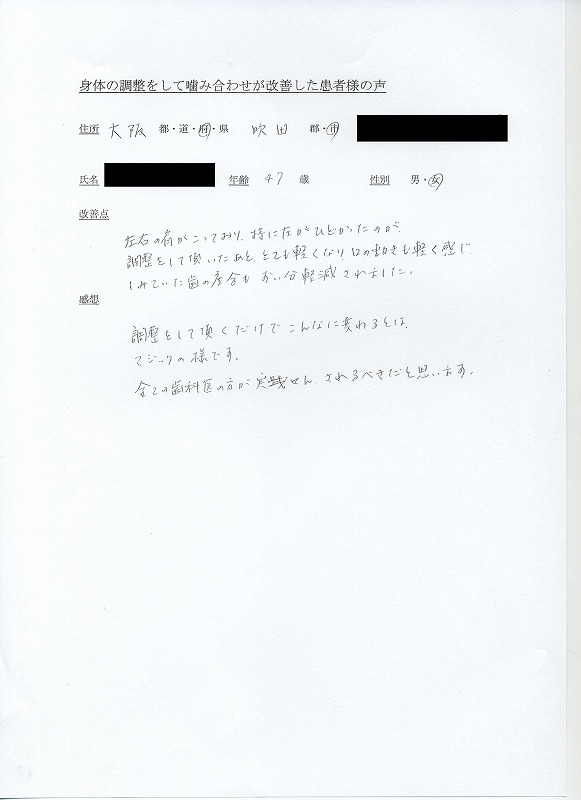 身体の調整をして噛み合わせが改善した患者様の声
住所 大阪 都・道・府・県 吹田 郡・市
氏名 年齢 47 歳 性別 男・女
改善点
左右の肩がこっており、特に左がひどかったのが、
調整をして頂いたあと、とても軽くなり、口の動きも軽く感じ
しみていた歯の度合も ずい分軽減されました。
感想
調整をして頂くだけで こんなに変わるとは、
マジックの様です。
全ての歯科医の方が 実践 されるべきだと思います。